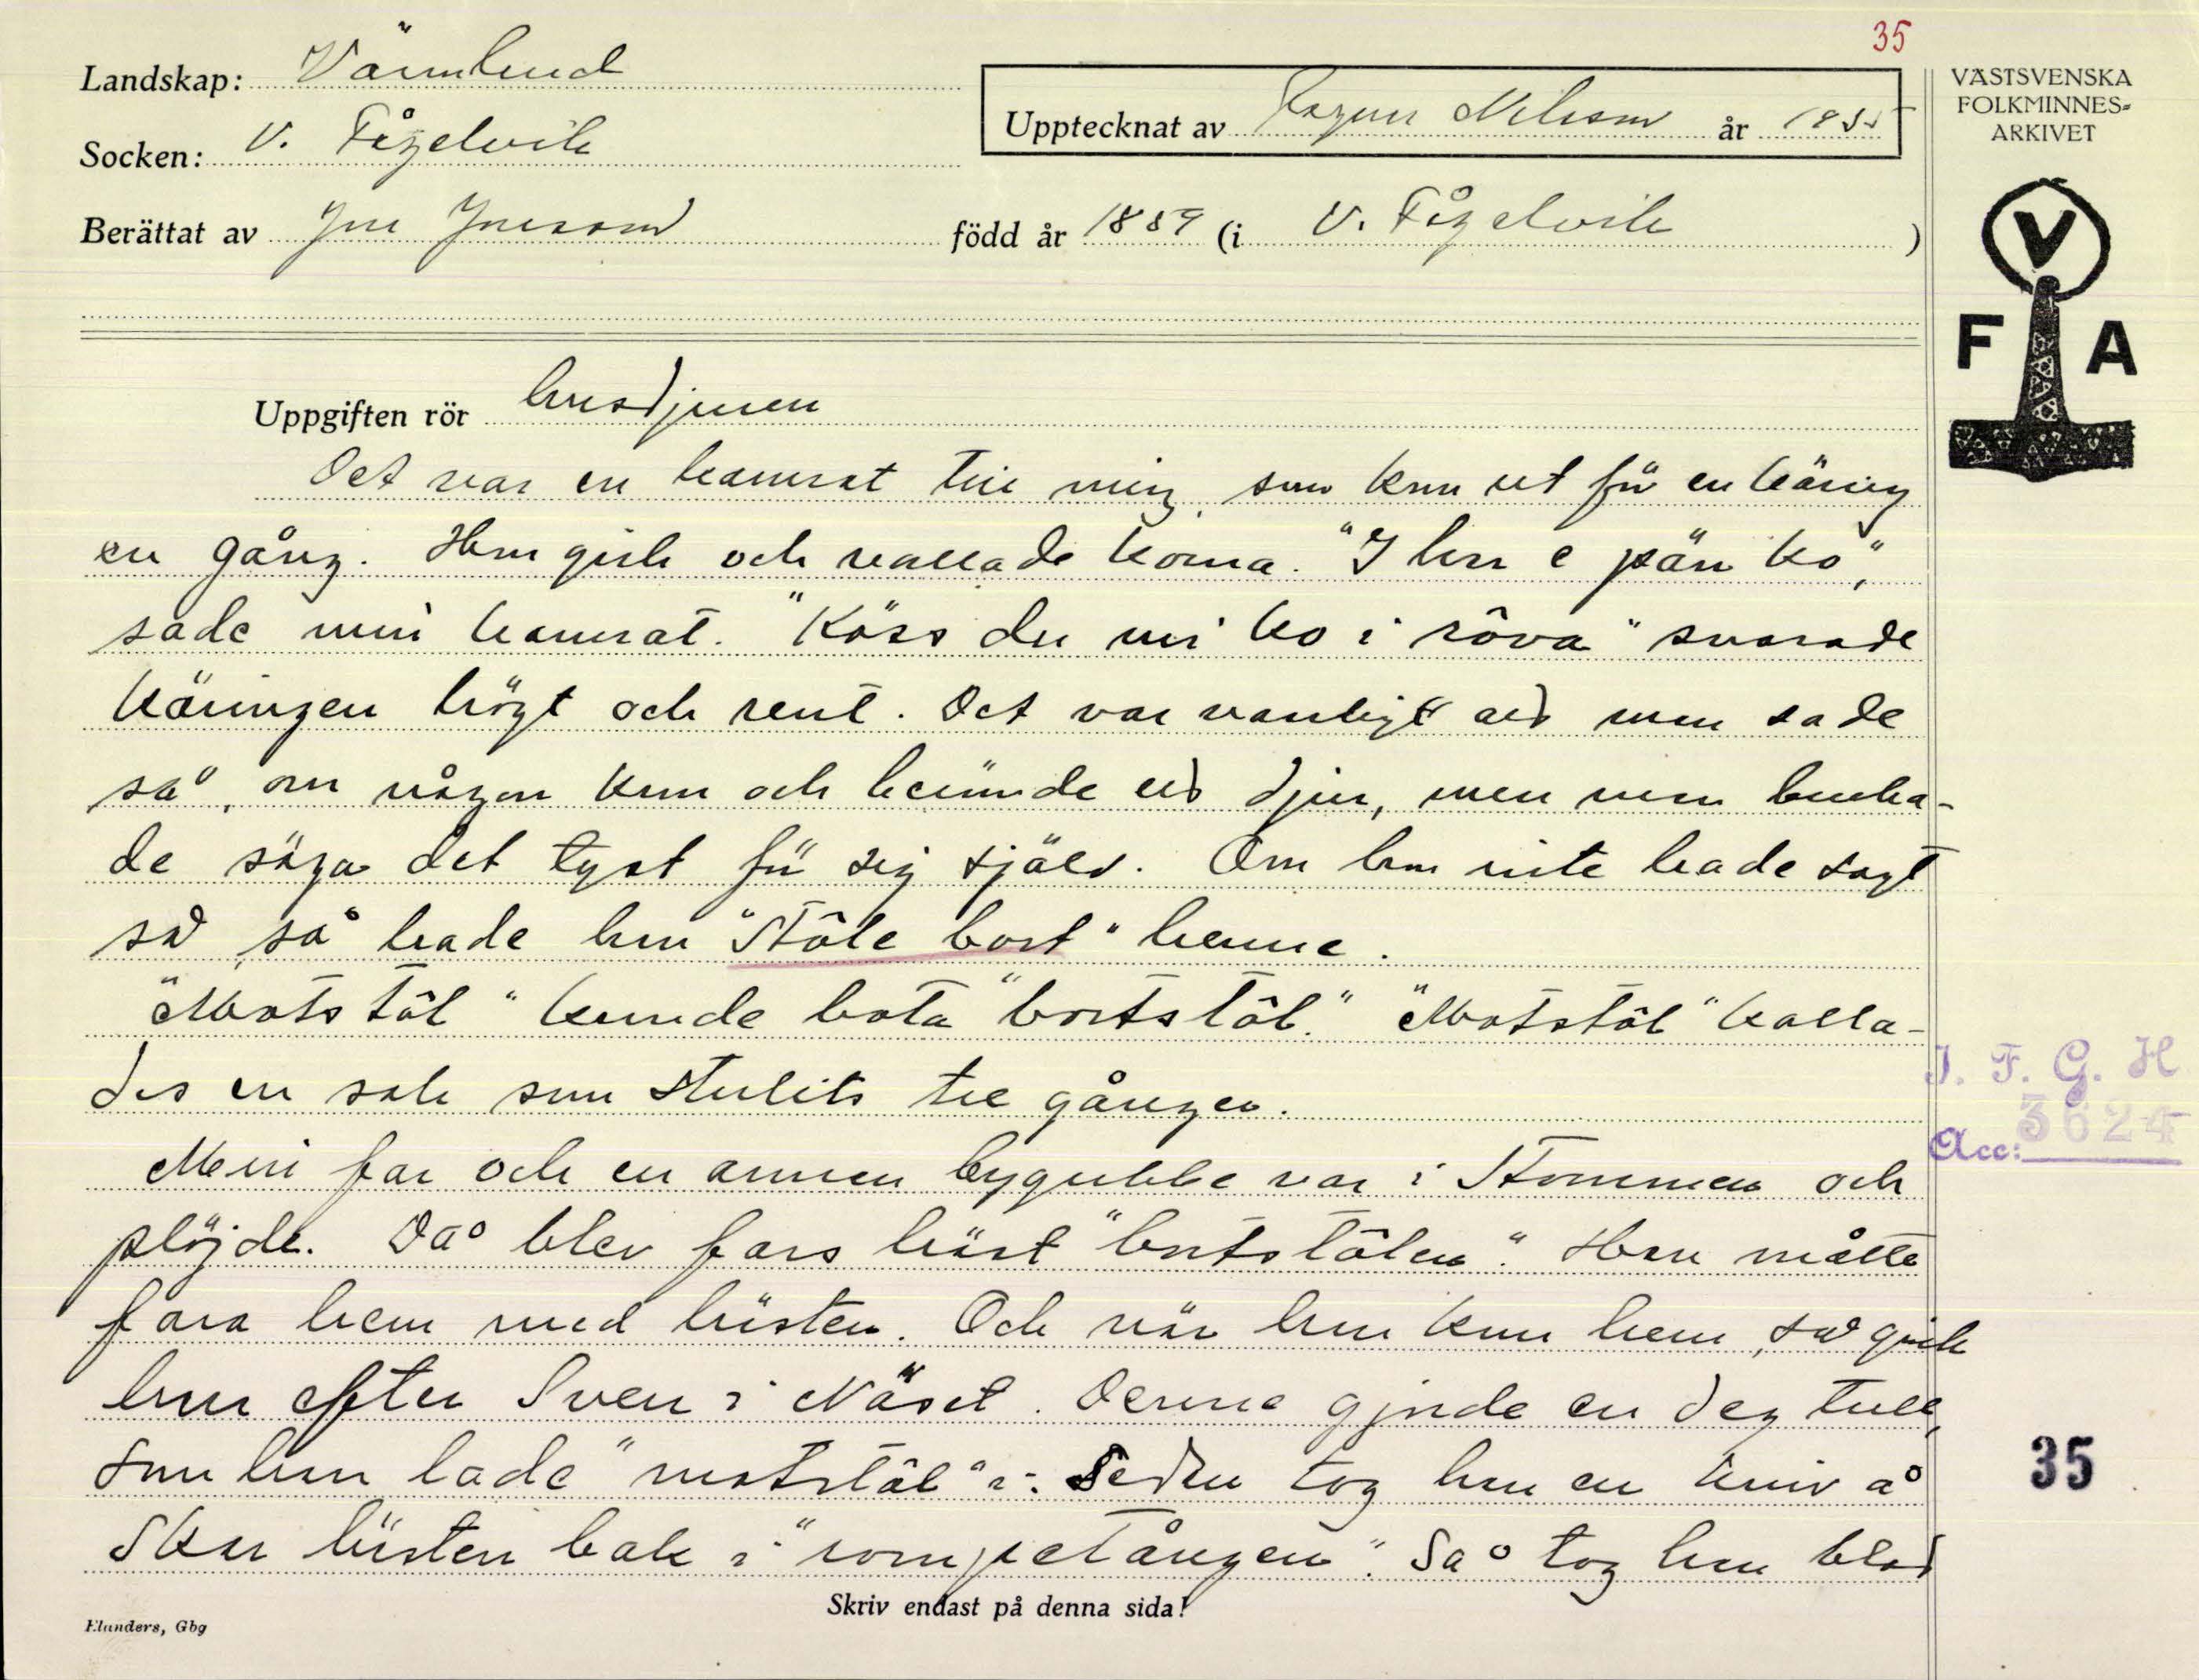 35
Landskap: Värmland
Upptecknat av Ragnar Nilsson år 1935
VÄSTSVENSKA
FOLKMINNES-
ARKIVET
Socken: V. Fågelvik
Berättat av Jon Jonsson född år 1859 (i V. Fågelvik)
V
F A
Uppgiften rör husdjuren
Det var en kamrat till mig, som kom ut för en käring
en gång. Hon gick och vallade korna. "I har e pän ko",
sade min kamrat. "Köss du mi ko i rôva" svarade
käringen högt och rent. Det var vanligt att man sade
så, om någon kom och berömde ett djur, men man bruka-
de säga det tyst för sig själv. Om hon inte hade sagt
så, så hade han "stôle bort" henne.
"Motstôl" kunde bota "bortstôl." "Motstôl" kalla-
des en sak som stulits tre gånger.
Min far och en annan bygubbe var i Stommen och
plöjde. Då blev fars häst "bortstôlen". Han måtte
fara hem med hästen. Och när han kom hem, så gick
han efter Sven i Näset. Denne gjorde en deg till,
som han lade "motstôl" i. Sedan tog han en kniv å
skar hästen bak i "rompetången". Så tog han blod
J. F. G. H
Acc: 3624
35
Skriv endast på denna sida!
Elanders, Gbg